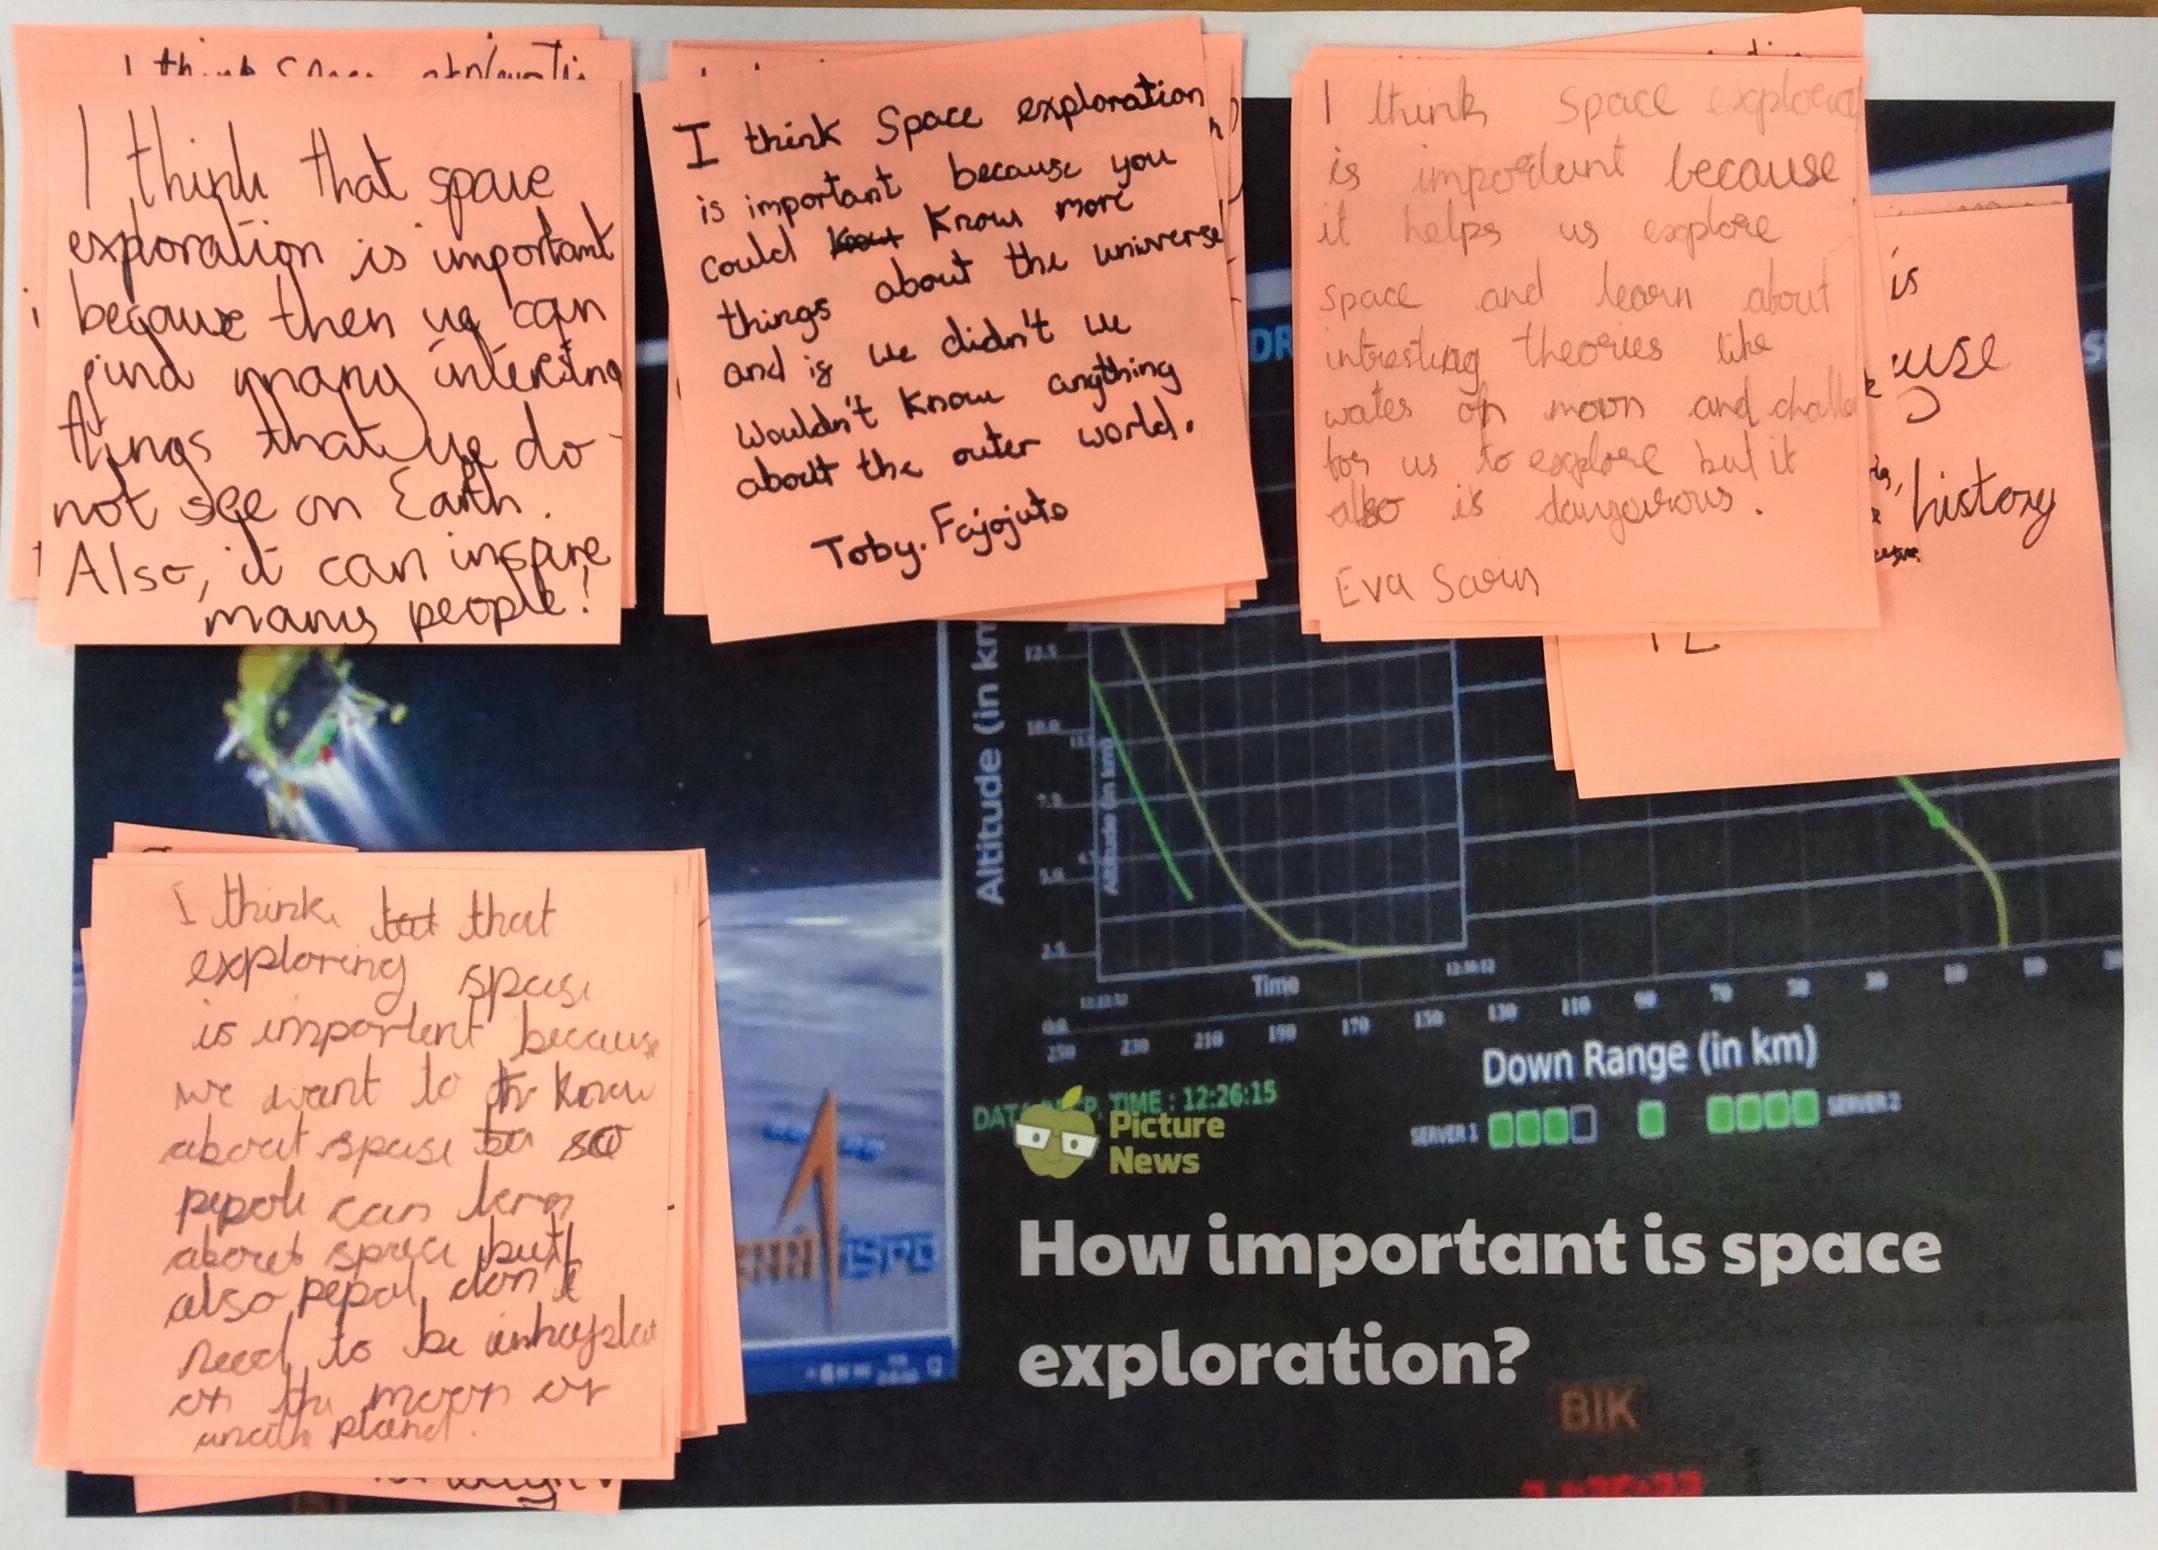 I think space
I think that space
exploration is important
because then we can
find many interesting
things that we do
not see on Earth.
Also, it can inspire
many people!
I think Space exploration
is important because you
could know more
things about the universe
and if we didn't we
wouldn't know anything
about the outer world.
Toby.
I think Space
is important because
it helps us explore
space and learn about
intresting theories like
on moon and
for us to explore but it
also is
Eva
is
use
history
I think that
exploring spase
is importent because
we want to know
about spase so
pepole can lern
about space but
also pepol don't
need to be
on the moon or
Altitude (in km
12.5
10.0
7.5
5.0
2.5
0.0
Altitude (in km)
Time
250 230 210 190 170 150 130 110 90 70 50 30
Down Range (in km)
TIME : 12:26:15
SERVER 1
SERVER 2
Picture
News
isro
How important is space
exploration?
BIK